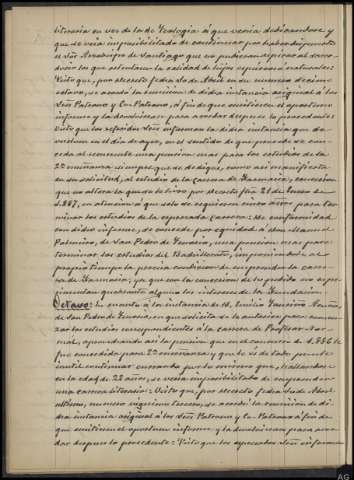 literaria en vez de la de Teología á que venia dedicandose y
que se veia imposibilitado de continuar por haber dispuesto
el Sõr Arzobispo de Santiago que no pudieran aspirar al sacer-
docio los que ostentasen la calidad de hijos espúreos ó naturales:
Visto que, por decreto fecha de Abril en su numero décimo
octavo, se acordó la remisión de dicha instancia original á los
Sres Patrono y Co-Patrono, á fin de que emitiesen el oportuno
informe y la devolviesen para acordar despues lo procedente:
Visto que los referidos Sres informan la dicha instancia que de-
vuelven en el dia de ayer, en el sentido de que procede se con-
ceda al semente una pension anual para los estudios de la
2ª enseñanza siempre que se dedique, como asi manifiesta
en su solicitud, al estudio de la carrera de Farmacia, concesion
que no altera la que se le hizo por decreto fecha 21 de Enero de
1.887, en atencion á que solo se requieren cinco años para ter-
minar los estudios de la expresada carrera: De conformidad
con dicho informe, se concede por equidad á don Manuel
Palmeiro, de San Pedro de una pension mas para
terminar los estudios del Bachillerato, imponiendole al
propio tiempo la precisa condicion de emprender la carre-
ra de Farmacia; ya que con la concesion de lo pedido no se per-
judican en absoluto los intereses de la Fundacion.
Octavo: En cuanto á la instancia de D. Emilio
de San Pedro de en que solicita se la autorice para comen-
zar los estudios correspondientes á la carrera de Profesor Nor-
mal, aprovechando asi la pension que en el concurso de 1.886 le
fue concedida para 2ª enseñanza y que le es de todo punto
inutil continuar cursando por lo oneroso que, hallandose
en la edad de 22 años, se veia imposibilitado de emprender
una carrera literaria: Visto que, por decreto fecha de Abril
ultimo, numero vigésimo tercero, se acordó la remisión de di-
cha instancia original á los Sres Patrono y Co-Patrono á fin de
que emitiesen el oportuno informe y la devolviesen para acor-
dar despues lo procedente: Visto que los expresados Sres informan
AG